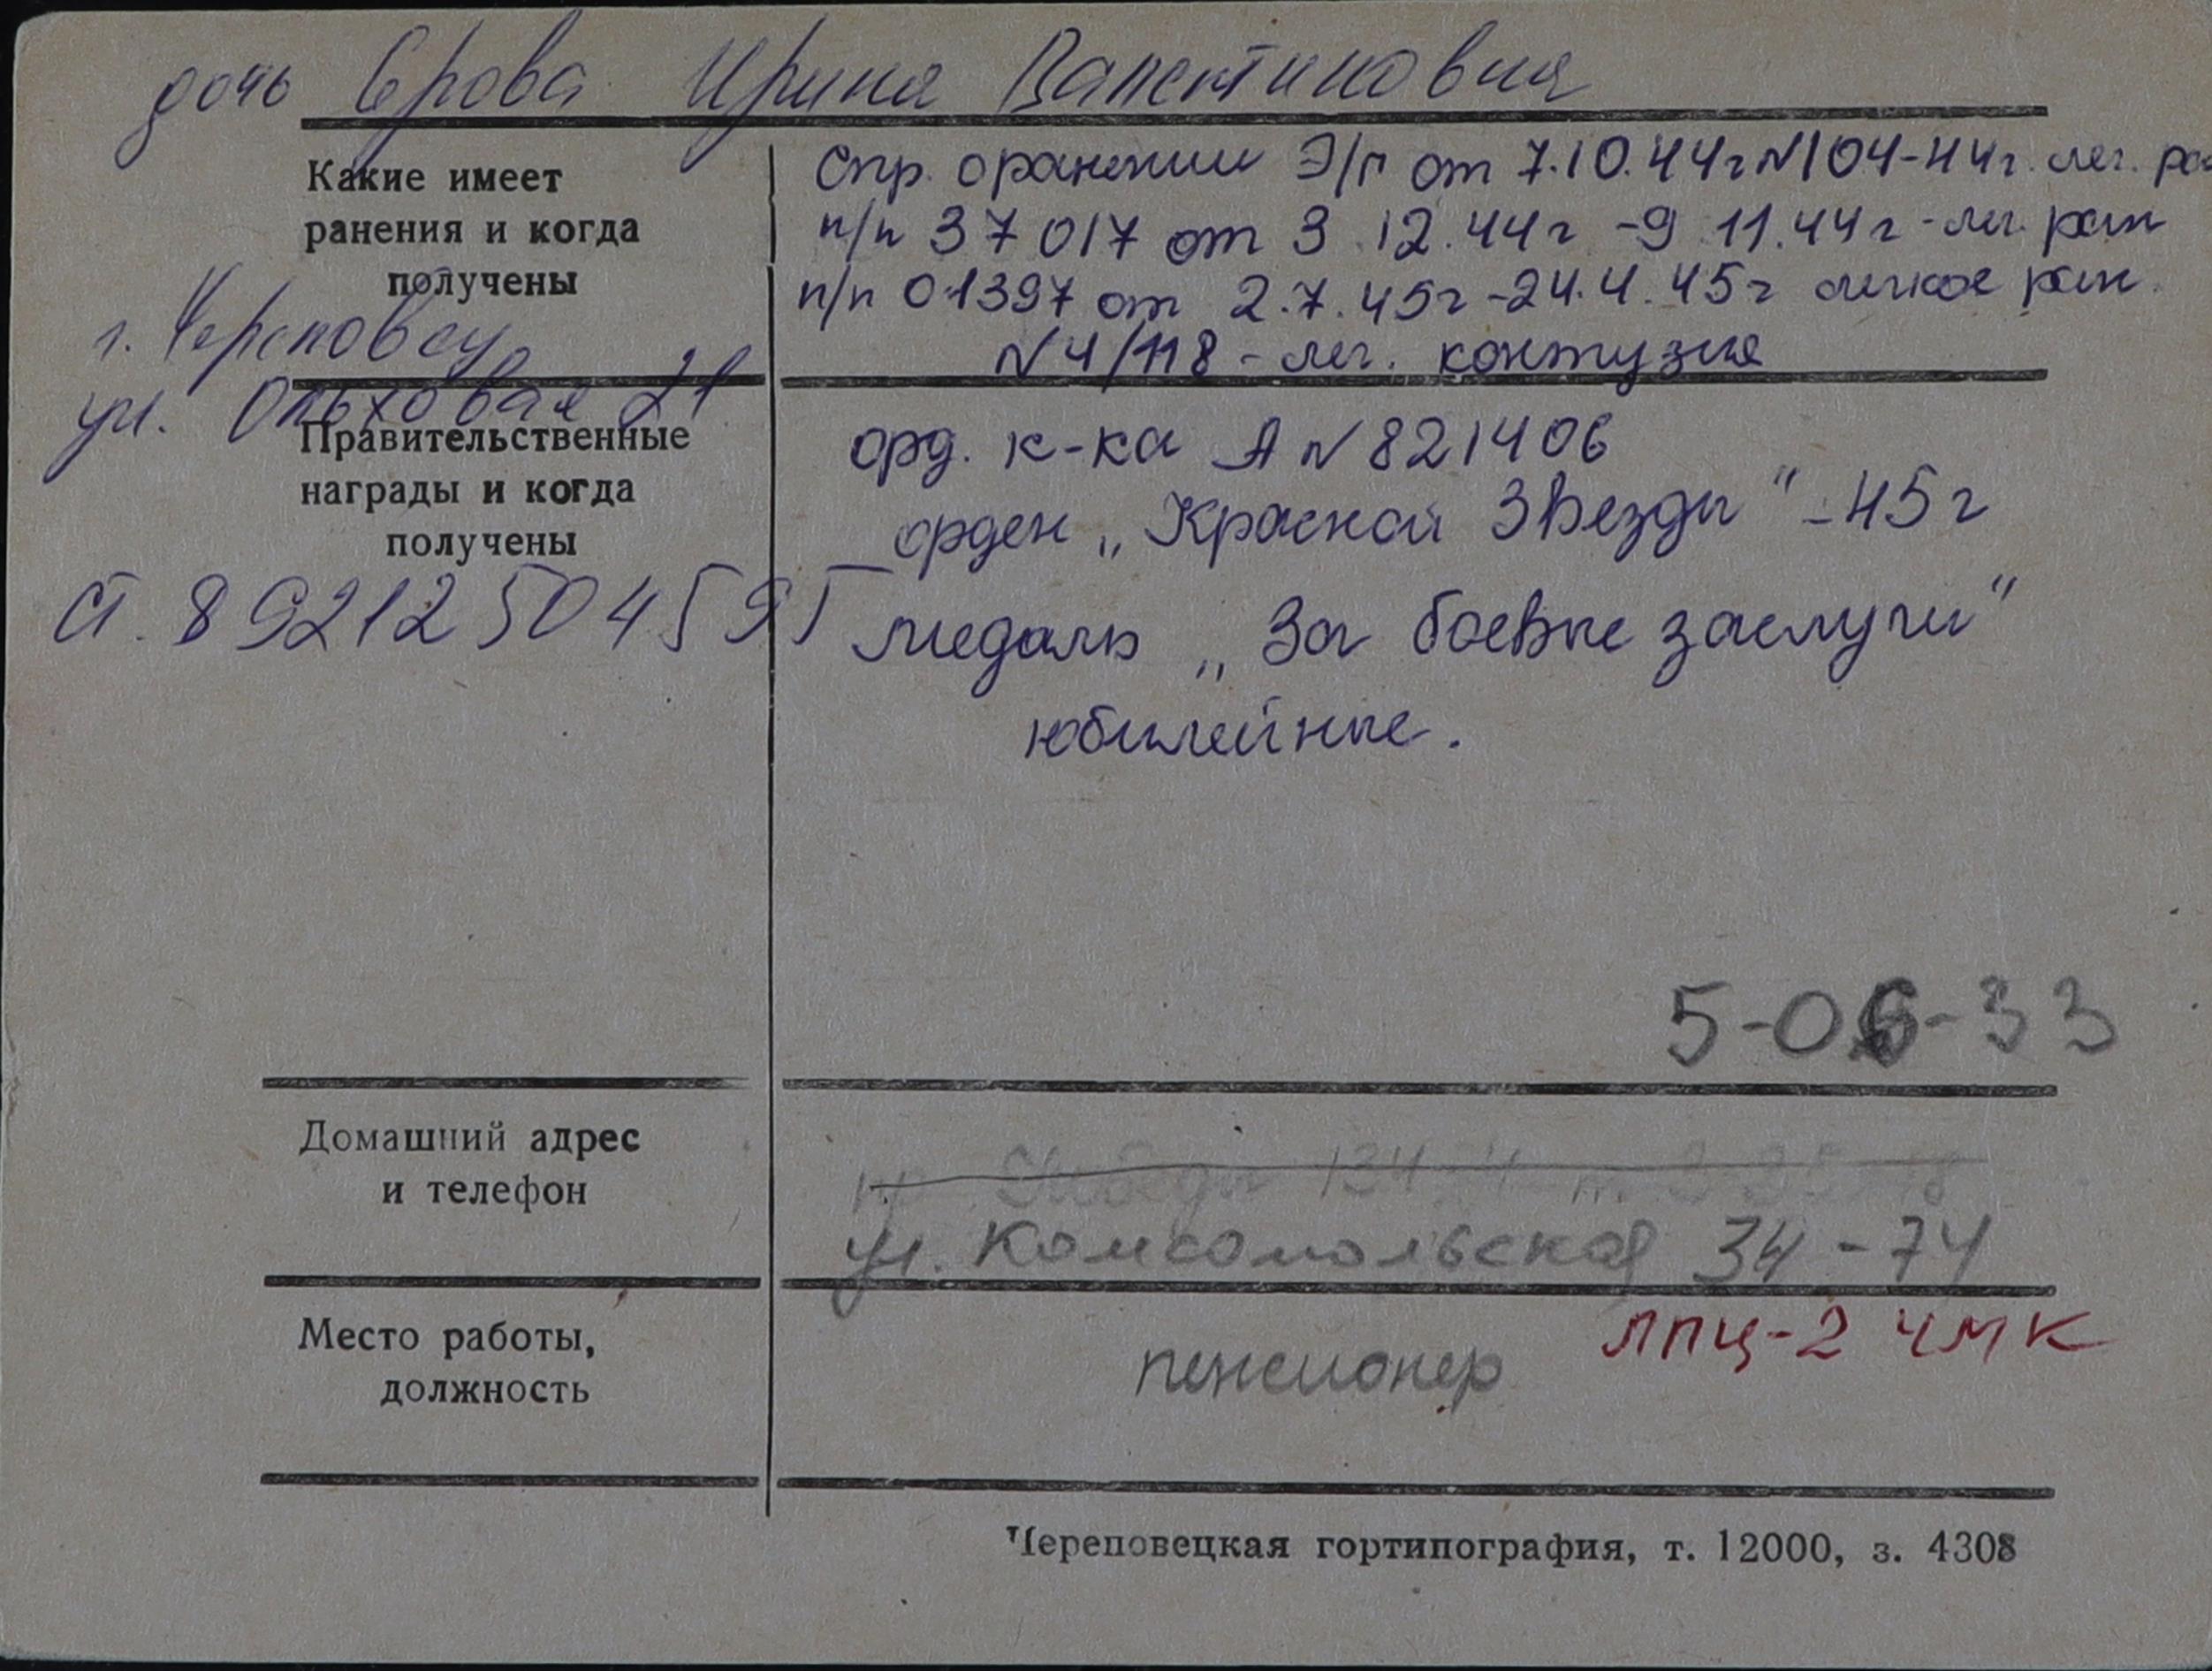 дочь Ерова Ирина Валентиновна
Какие имеет
ранения и когда
получены
Спр. о ранении Э/п от 7.10.44г №104-44г. лег. ра
п/п 37017 от 3.12.44г - 9.11.44г - лег. ран
п/п 01397 от 2.7.45г - 24.4.45г легкое ран.
№4/118 - лег. контузия
г. Череповец
ул. Ольховая 21
Правительственные
награды и когда
получены
орд. к-ка А №821406
орден „Красной Звезды" - 45г
ст. 89212504595
медаль „За боевые заслуги"
юбилейные.
5-06-33
Домашний адрес
и телефон
ул. Комсомольская 34-74
Место работы,
должность
лпц-2 чмк
пенсионер
Череповецкая гортипография, т. 12000, з. 4308